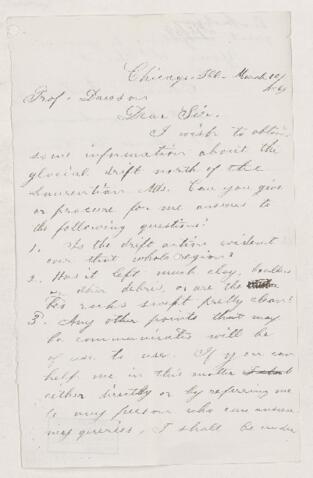 Chicago Ill. March 10/
Prof. Dawson
Dear Sir.
I wish to obtain
some information about the
glacial drift north of the
Laurentian Mts. Can you give
or procure for me answers to
the following questions?
1. Is the drift action evident
over that whole region?
2. Has it left much clay, boulders
or other debris, or are the
rocks swept pretty clean?
3. Any other points that may
be communicated will be
of use to use. If you can
help me in this matter
either directly or by referring me
to any person who can answer
my queries, I shall be under